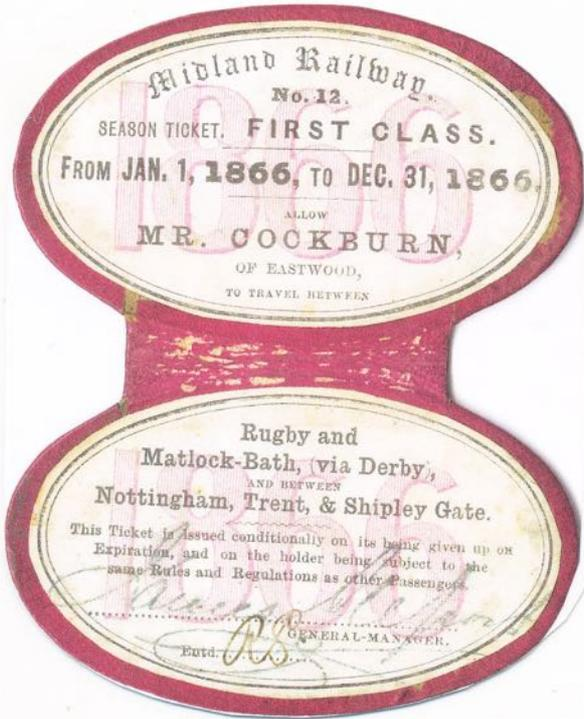 Midland Railway.
No. 12.
SEASON TICKET. FIRST CLASS.
FROM JAN. 1, 1866, TO DEC. 31, 1866,
ALLOW
MR. COCKBURN,
OF EASTWOOD,
TO TRAVEL BETWEEN
1866
Rugby and
Matlock-Bath, (via Derby),
AND BETWEEN
Nottingham, Trent, & Shipley Gate.
This Ticket is issued conditionally on its being given up on
Expiration, and on the holder being subject to the
same Rules and Regulations as other Passengers.
GENERAL-MANAGER.
Entd.
1866